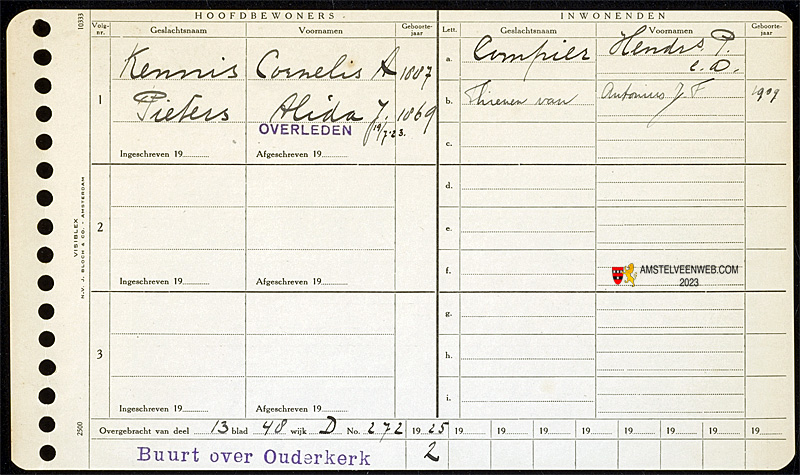 HOOFDBEWONERS INWONENDEN
Volg-nr. Geslachtsnaam Voornamen Geboorte-jaar Lett. Geslachtsnaam Voornamen Geboorte-jaar
1 Kennis Cornelis A 1887
Pieters Alida J. 1869
OVERLEDEN 19/7.23.
Ingeschreven 19 Afgeschreven 19
a. Compier Hendrs. P.
C.D.
b. Thienen van Antonius J F 1909
c.
2
Ingeschreven 19 Afgeschreven 19
d.
e.
f.
3
Ingeschreven 19 Afgeschreven 19
g.
h.
i.
Overgebracht van deel 13 blad 48 wijk D No. 272 19 25 19 19 19 19 19 19 19 19
Buurt over Ouderkerk 2
10333
VISIBLEX
N.V. J. BLOCH & CO. - AMSTERDAM
2500
AMSTELVEENWEB.COM
2023